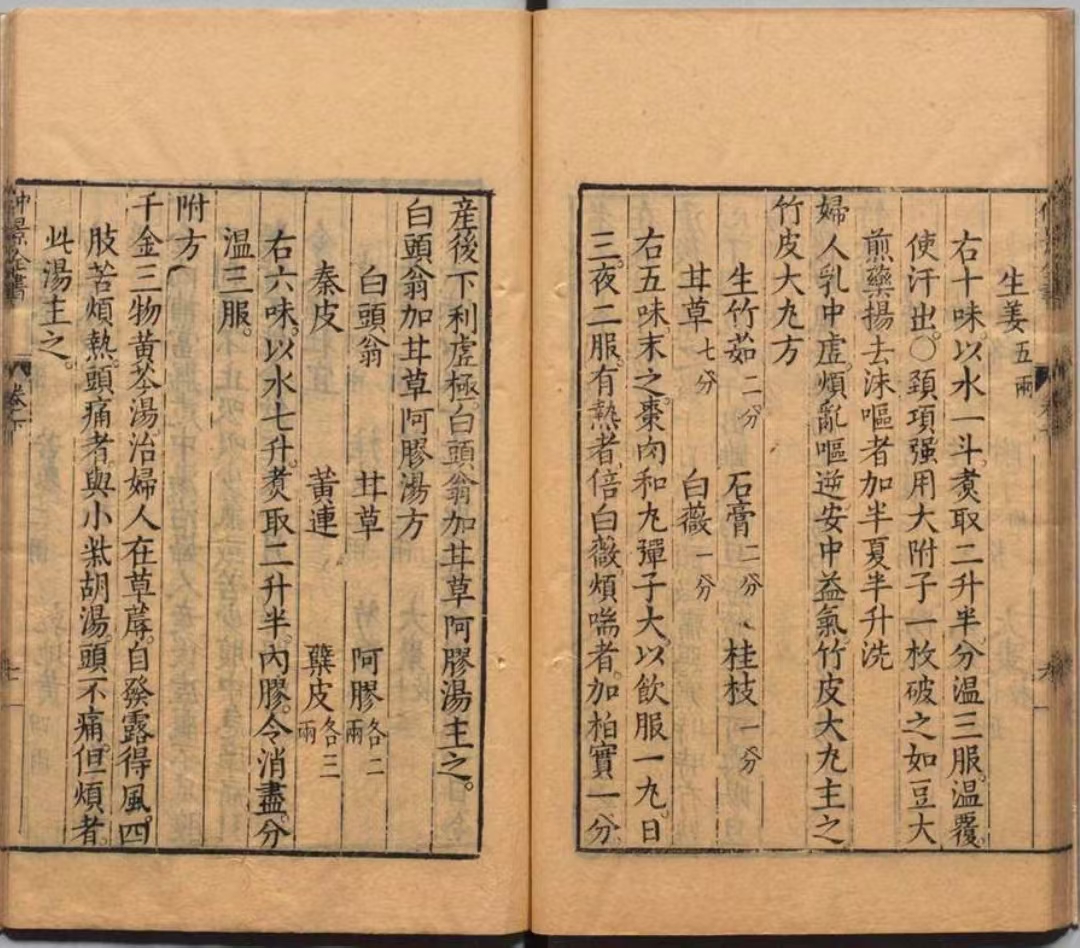 生姜五兩
右十味以水一斗煑取二升半分溫三服。溫覆。
使汗出。〇頚項强用大附子一枚破之如豆大
煎藥揚去沫嘔者加半夏半升洗
婦人乳中虛煩亂嘔逆安中益氣竹皮大丸主之
竹皮大丸方
生竹茹二分 石膏二分 桂枝一分
甘草七分 白薇一分
右五味末之棗肉和丸彈子大以飲服一丸。日
三。夜二服。有熱者倍白薇煩喘者。加柏實一分
産後下利虛極。白頭翁加甘草阿膠湯主之。
白頭翁加甘草阿膠湯方
白頭翁 甘草 阿膠各二兩
秦皮 黃連 蘗皮各三兩
右六味。以水七升。煑取二升半。內膠。令消盡。分
溫三服。
附方
千金三物黃芩湯。治婦人在草蓐。自發露得風。四
肢苦煩熱。頭痛者。與小柴胡湯。頭不痛。但煩者。
此湯主之。
仲景全書 卷下